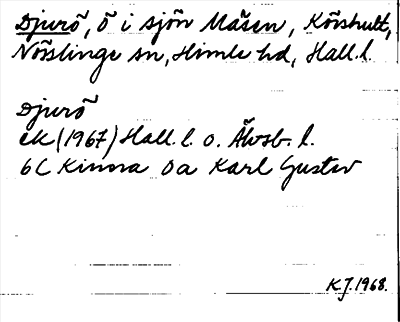 Djurö, ö i sjön Mäsen, Körshult,
Nösslinge sn, Himle hd, Hall. l.
Djurö
ek (1967) Hall. l. o. Älvsb. l.
6C Kinna 0a Karl Gustav
K.J. 1968.